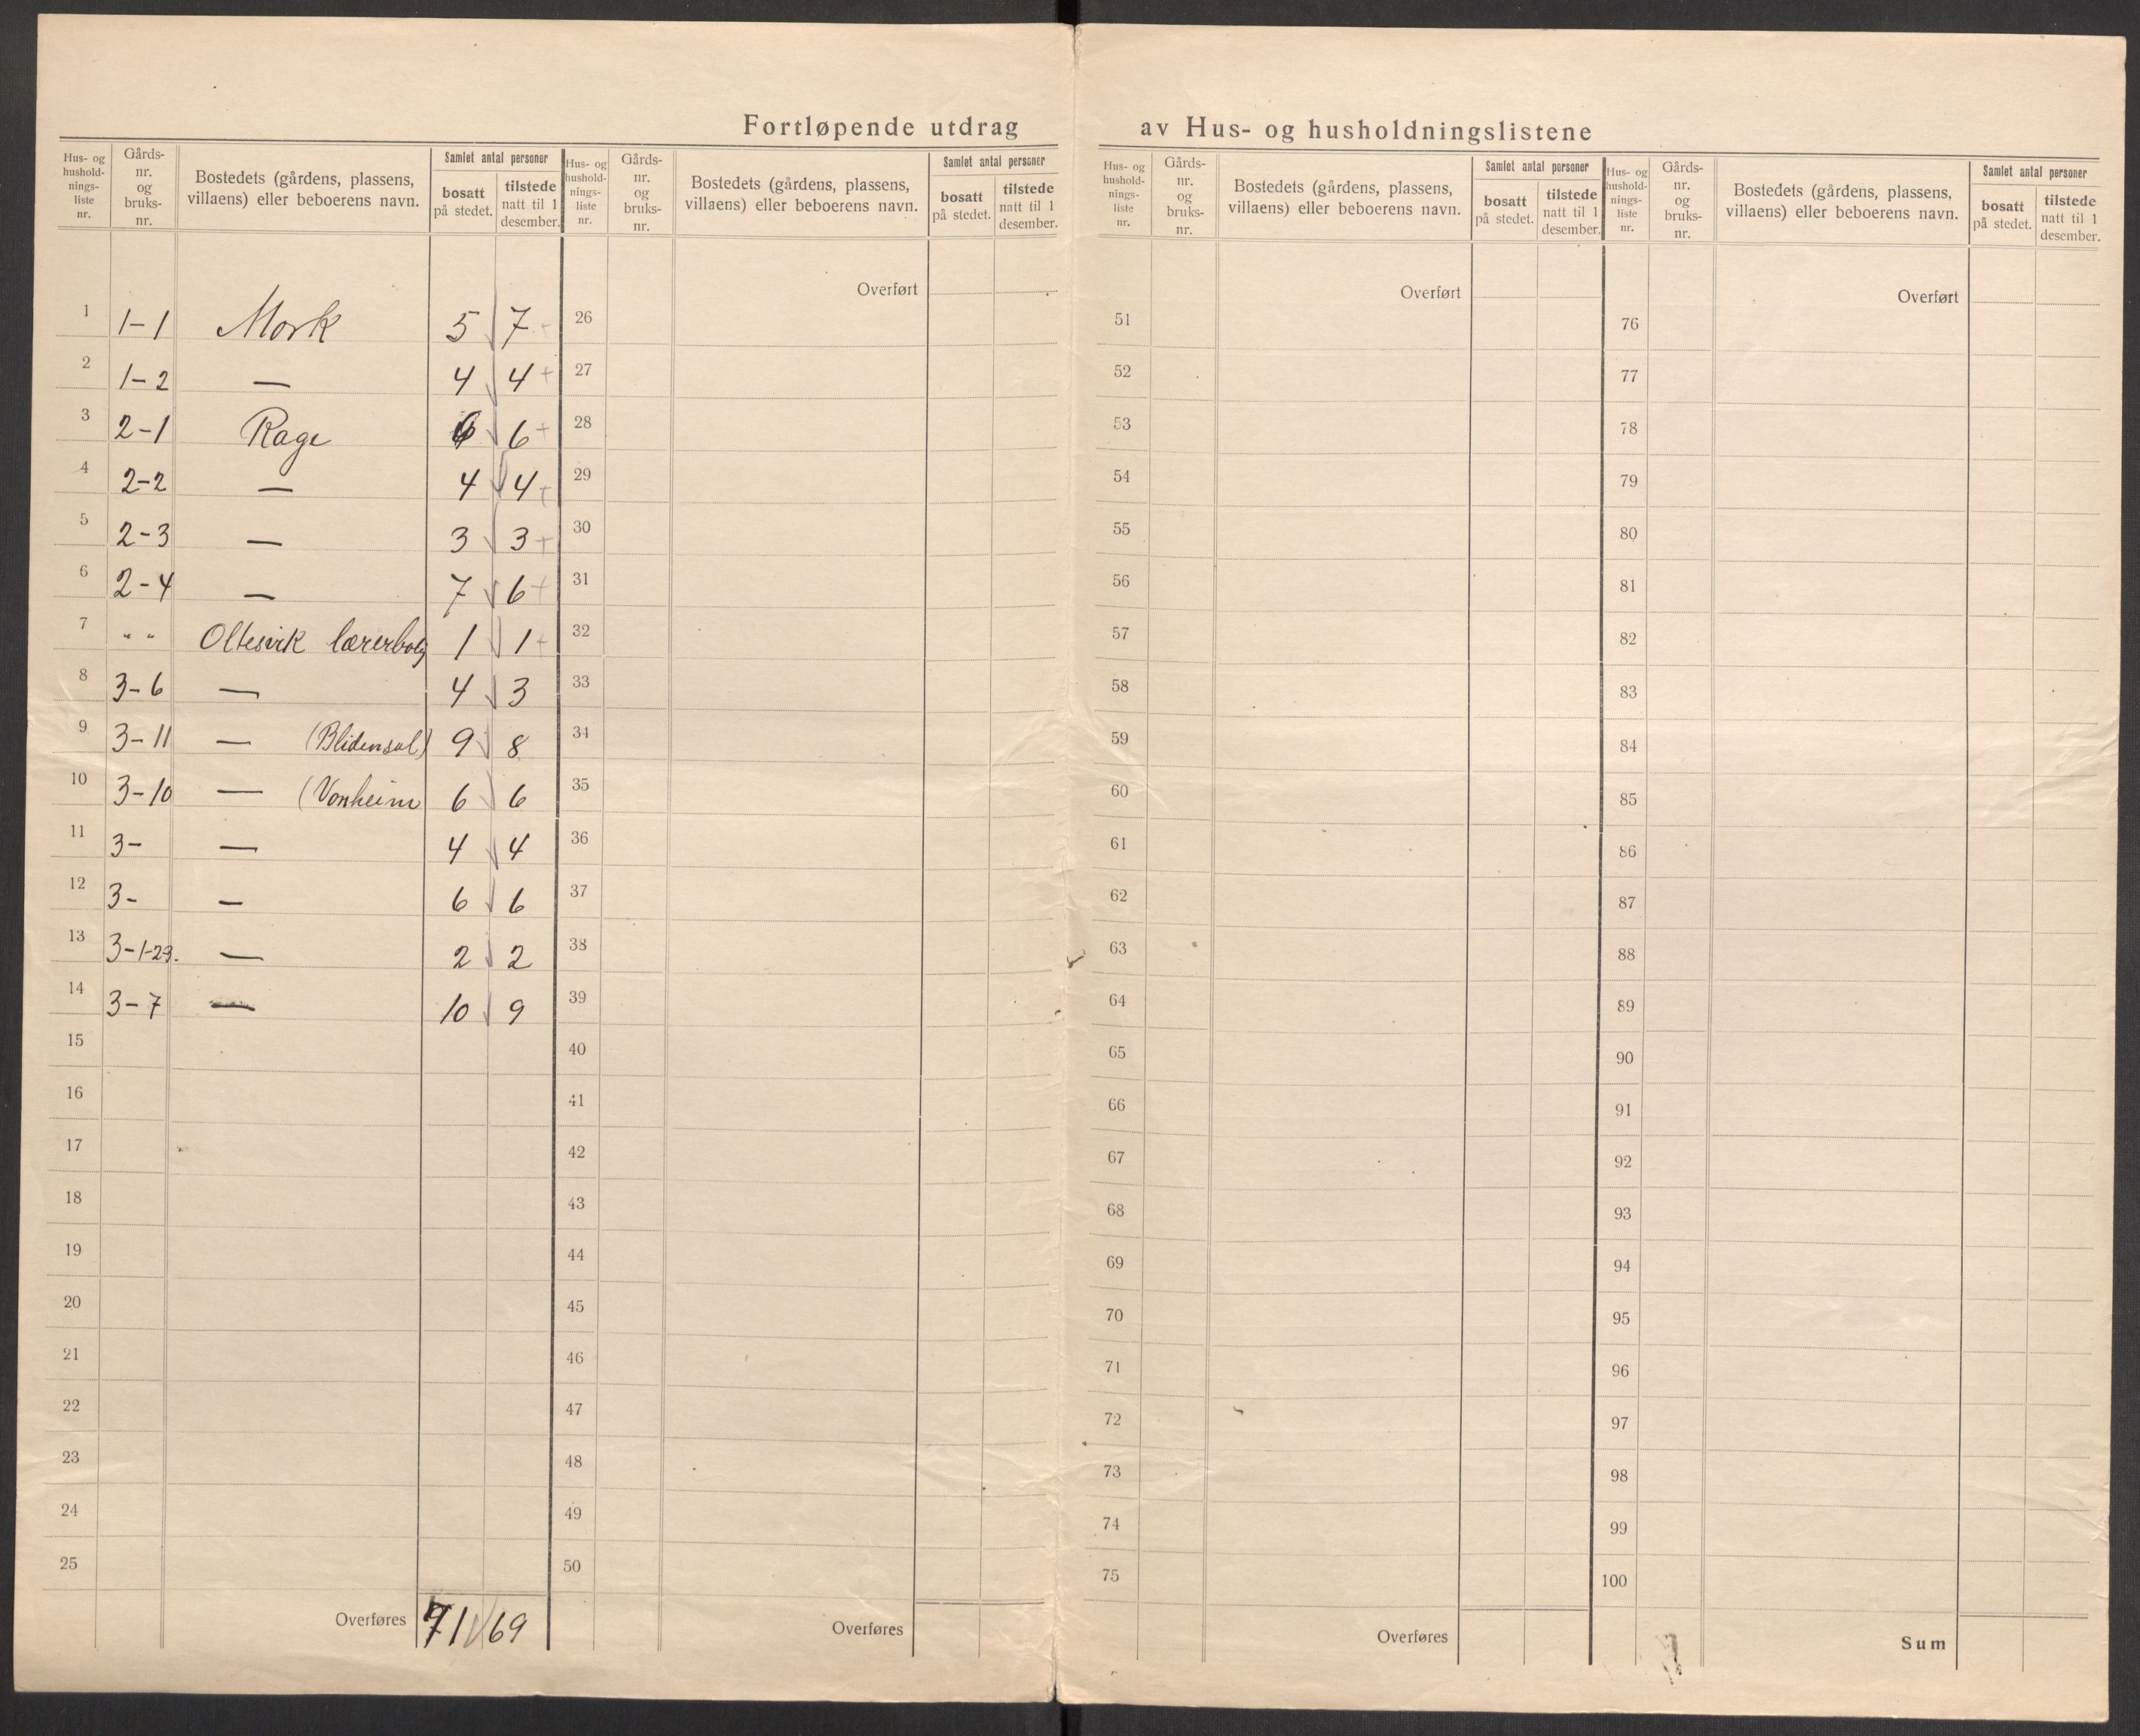 Fortløpende utdrag av Hus- og husholdningslistene
Hus- og hushold-nings-liste nr. | Gårds-nr. og bruks-nr. | Bostedets (gårdens, plassens, villaens) eller beboerens navn. | Samlet antal personer | bosatt på stedet. | tilstede natt til 1 desember.
1 1-1 Mork 5 7
2 1-2 — 4 4
3 2-1 Rage 6 6
4 2-2 — 4 4
5 2-3 — 3 3
6 2-4 — 7 6
7 " " Oltesvik lærerbolg 1 1
8 3-6 — 4 3
9 3-11 — (Blidensol) 9 8
10 3-10 — (Vonheim 6 6
11 3- — 4 4
12 3- — 6 6
13 3-1-23. — 2 2
14 3-7 — 10 9
15
16
17
18
19
20
21
22
23
24
25
Overføres 71 69
Hus- og hushold-nings-liste nr. | Gårds-nr. og bruks-nr. | Bostedets (gårdens, plassens, villaens) eller beboerens navn. | Samlet antal personer | bosatt på stedet. | tilstede natt til 1 desember.
Overført
26
27
28
29
30
31
32
33
34
35
36
37
38
39
40
41
42
43
44
45
46
47
48
49
50
Overføres
Hus- og hushold-nings-liste nr. | Gårds-nr. og bruks-nr. | Bostedets (gårdens, plassens, villaens) eller beboerens navn. | Samlet antal personer | bosatt på stedet. | tilstede natt til 1 desember.
Overført
51
52
53
54
55
56
57
58
59
60
61
62
63
64
65
66
67
68
69
70
71
72
73
74
75
Overføres
Hus- og hushold-nings-liste nr. | Gårds-nr. og bruks-nr. | Bostedets (gårdens, plassens, villaens) eller beboerens navn. | Samlet antal personer | bosatt på stedet. | tilstede natt til 1 desember.
Overført
76
77
78
79
80
81
82
83
84
85
86
87
88
89
90
91
92
93
94
95
96
97
98
99
100
Sum